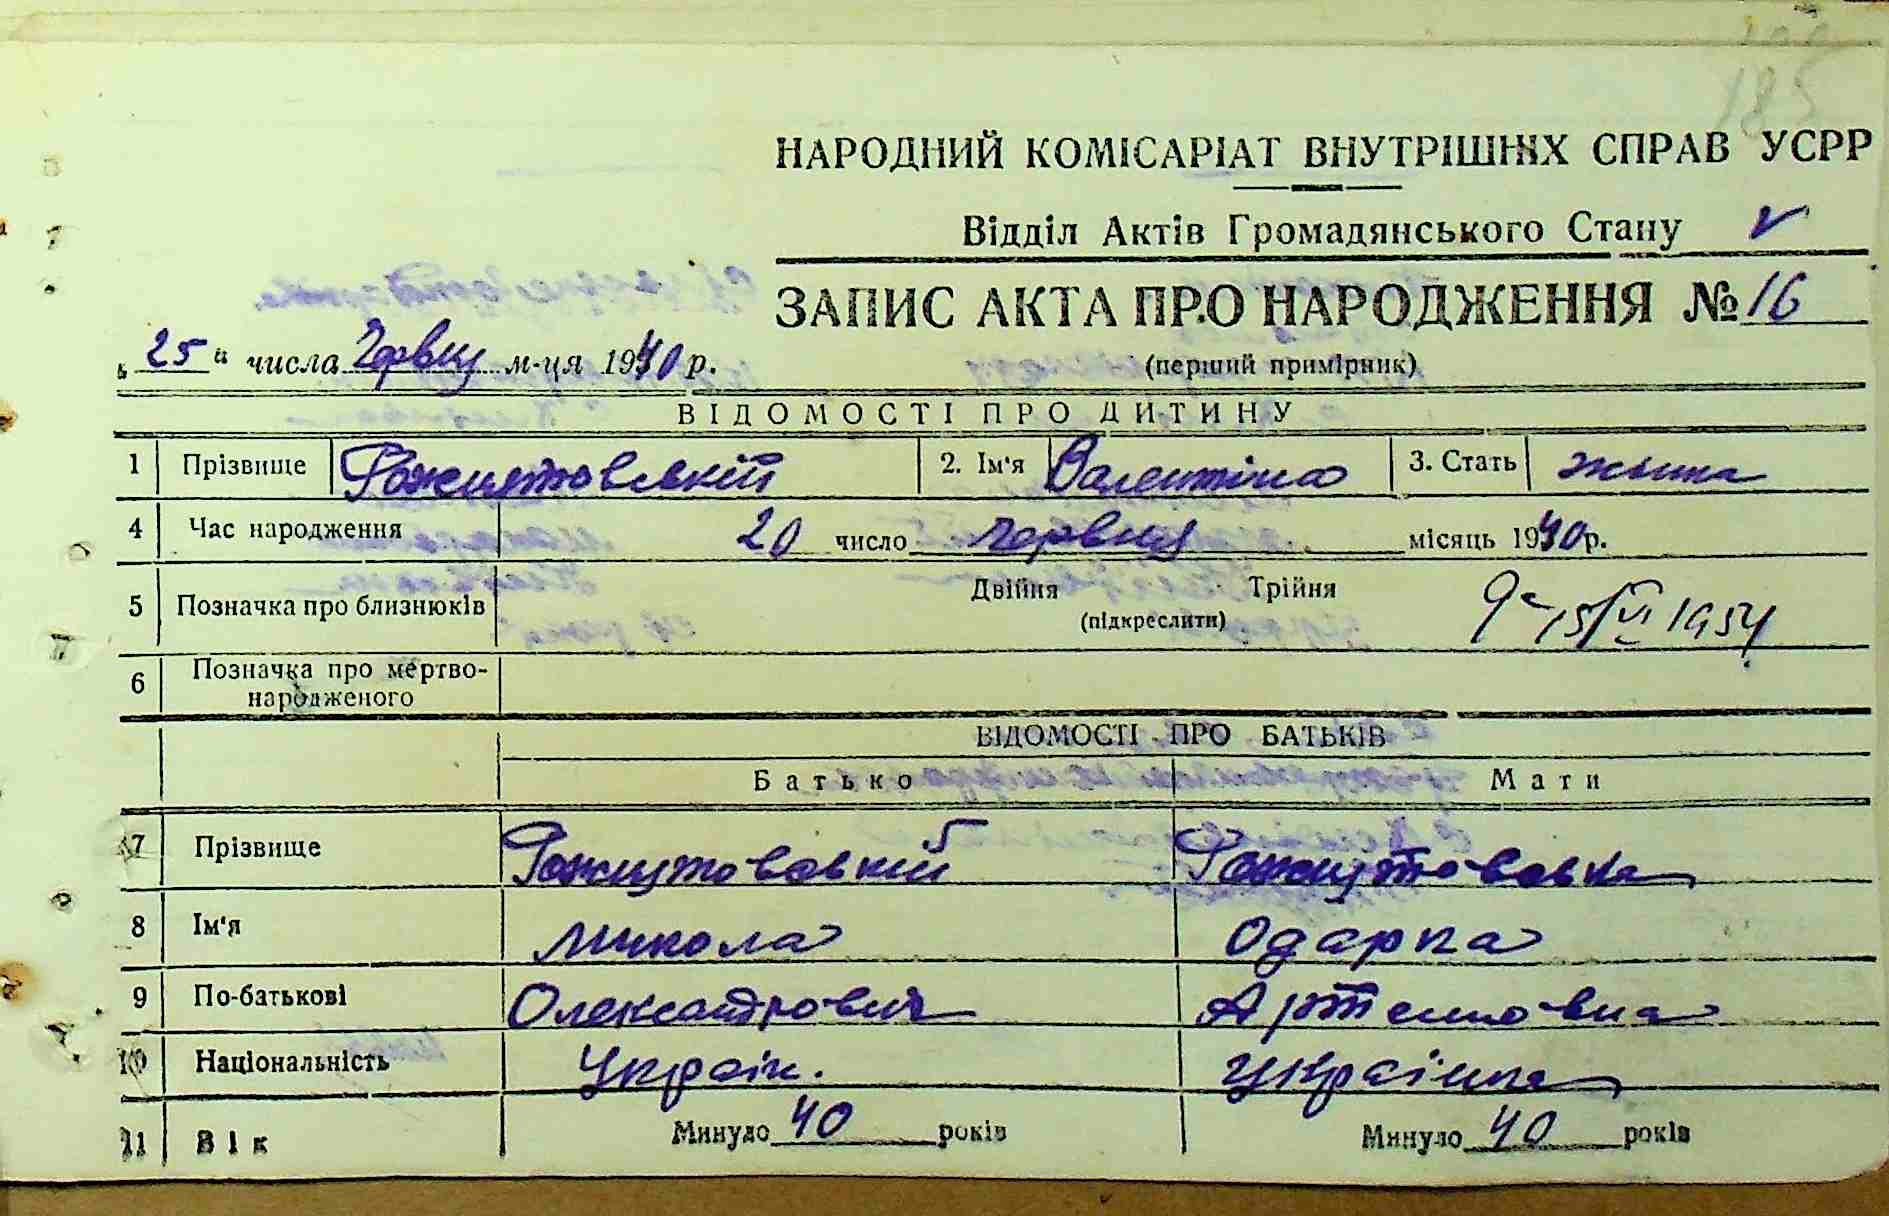 185
НАРОДНИЙ КОМІСАРІАТ ВНУТРІШНІХ СПРАВ УСРР
Відділ Актів Громадянського Стану
ЗАПИС АКТА ПРО НАРОДЖЕННЯ № 16
„ 25 “ числа Червця м-ця 1940 р.
(перший примірник)
ВІДОМОСТІ ПРО ДИТИНУ
1 Прізвище 2. Ім'я Валентіна 3. Стать
4 Час народження 20 число Червця місяць 1940 р.
5 Позначка про близнюків Двійня Трійня
(підкреслити) 15/VI 1954
6 Позначка про мертво-
народженого
ВІДОМОСТІ ПРО БАТЬКІВ
Батько Мати
7 Прізвище
8 Ім'я Микола Одарка
9 По-батькові Олександрович Артемовна
10 Національність Україн. Українка
11 Вік Минуло 40 років Минуло 40 років